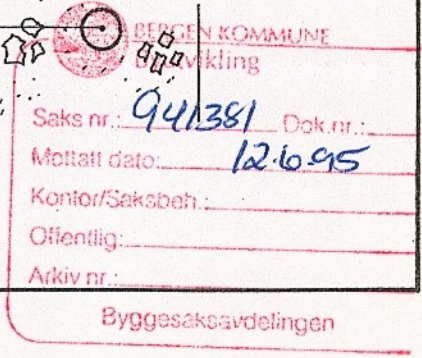 BERGEN KOMMUNE
Byutvikling
Saks nr.: 941381 Dok.nr.:
Mottatt dato: 12.6.95
Kontor/Saksbeh.:
Offentlig:
Arkiv nr.:
Byggesaksavdelingen